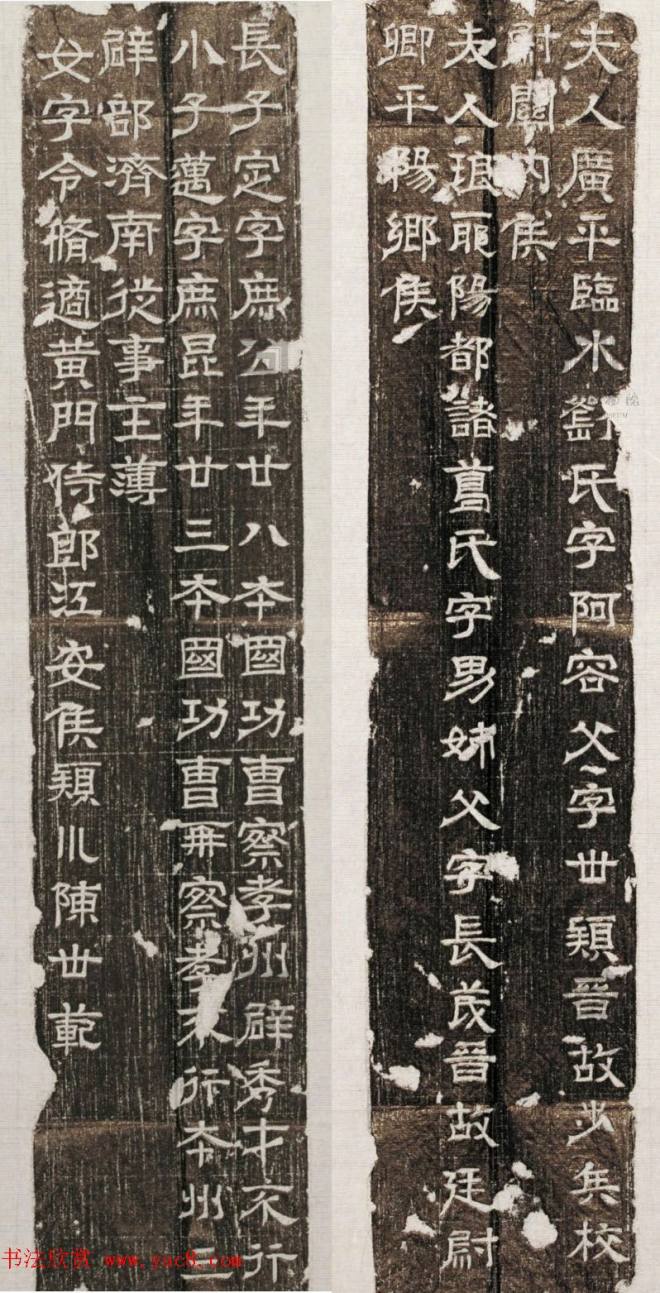 夫人廣平臨水劉氏字阿容父字世穎晉故步兵校
尉關內侯
夫人琅耶陽都諸葛氏字男姊父字長茂晉故廷尉
卿平陽鄉侯
長子定字庶公年廿八本國功曹察孝州辟秀才不行
小子邁字庶昆年廿三本國功曹再察孝不行本州三
辟部濟南從事主薄
女字令脩適黃門侍郎江安侯穎川陳世範
书法欣赏 www.yac8.com